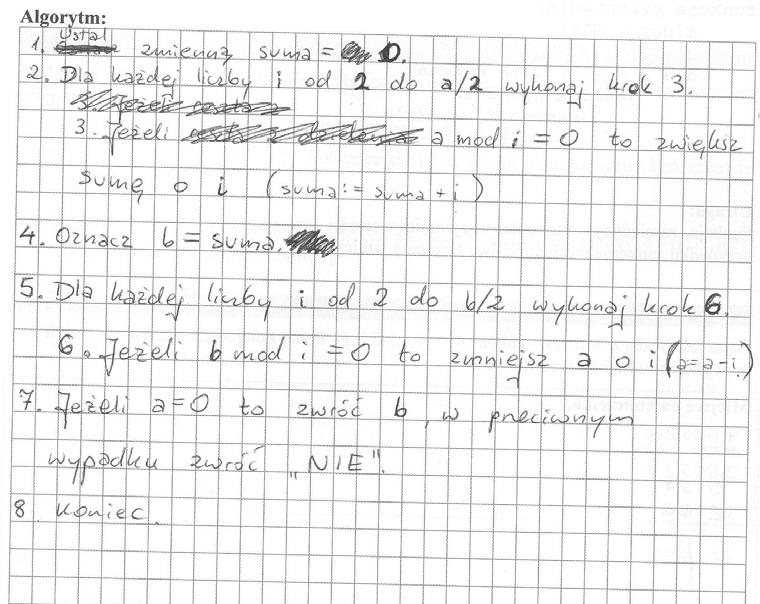 Algorytm:
1. Ustal zmienną suma = 0.
2. Dla każdej liczby i od 2 do a/2 wykonaj krok 3.
3. Jeżeli a mod i = 0 to zwiększ
sumę o i (suma:= suma + i)
4. Oznacz b = suma.
5. Dla każdej liczby i od 2 do b/2 wykonaj krok 6.
6. Jeżeli b mod i = 0 to zmniejsz a o i (a=a-i)
7. Jeżeli a=0 to zwróć b, w przeciwnym
wypadku zwróć „NIE".
8 Koniec.